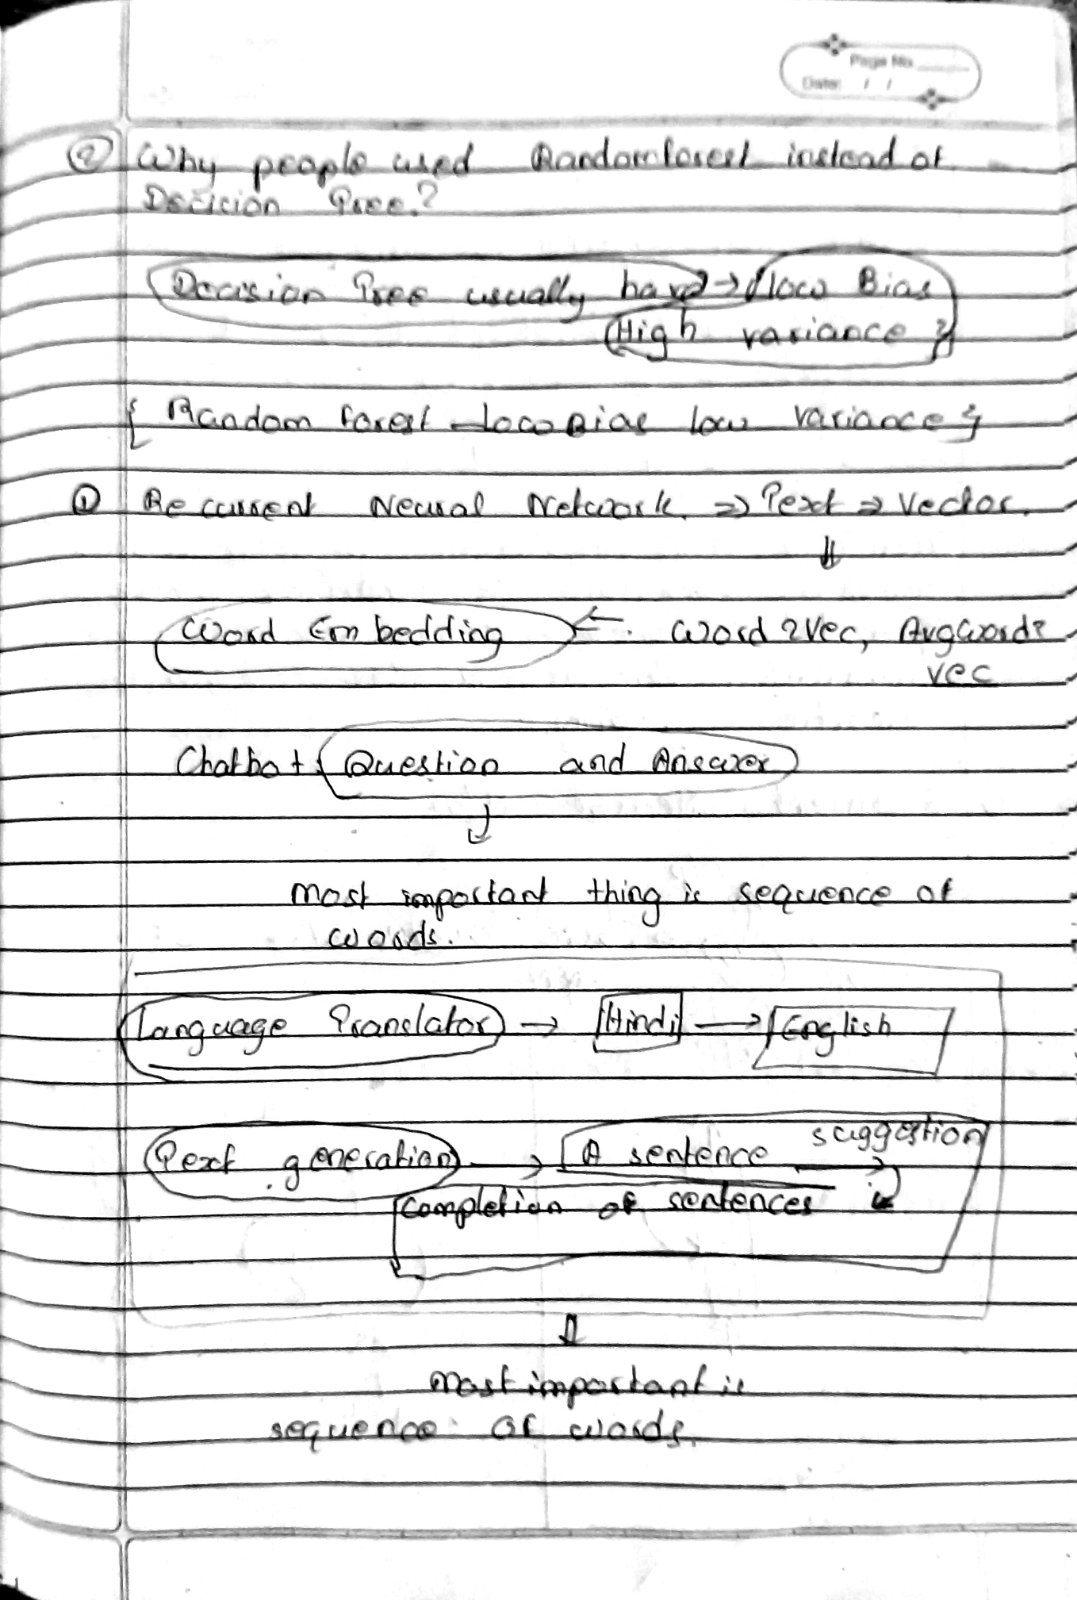 Page No.
Date: / /
② Why people used Randomforest instead of
Decicion Tree?
Decision Tree usually have → { low Bias
High variance }
{ Random forest - low Bias low variance }
① Recurrent Neural Network. ⇒ Text ⇒ Vector.
⇓
Word Embedding ← Word2Vec, AvgWord2
vec
Chatbot { Question and Answer
↓
most important thing is sequence of
words.
Language Translator → Hindi → English
Text generation → A sentence suggestion
completion of sentences is
⇓
most important is
sequence of words.